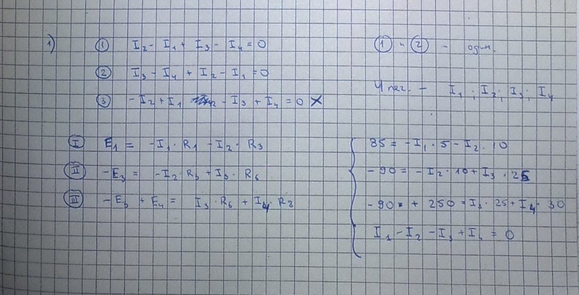 1) ① I₂ - I₁ + I₃ - I₄ = 0
② I₃ - I₄ + I₂ - I₁ = 0
③ - I₂ + I₁ - I₃ + I₄ = 0 ×
① и ② - один.
I₁ ; I₂ ; I₃ ; I₄
Ⅰ E₁ = -I₁ · R₁ - I₂ · R₃
Ⅱ -E₃ = -I₂ · R₃ + I₃ · R₆
Ⅲ -E₃ + E₄ = I₃ · R₆ + I₄ R₂
85 = -I₁ · 5 - I₂ · 10
-90 = -I₂ · 10 + I₃ · 25
-90 + 250 = I₃ · 25 + I₄ · 30
I₁ - I₂ - I₃ + I₄ = 0